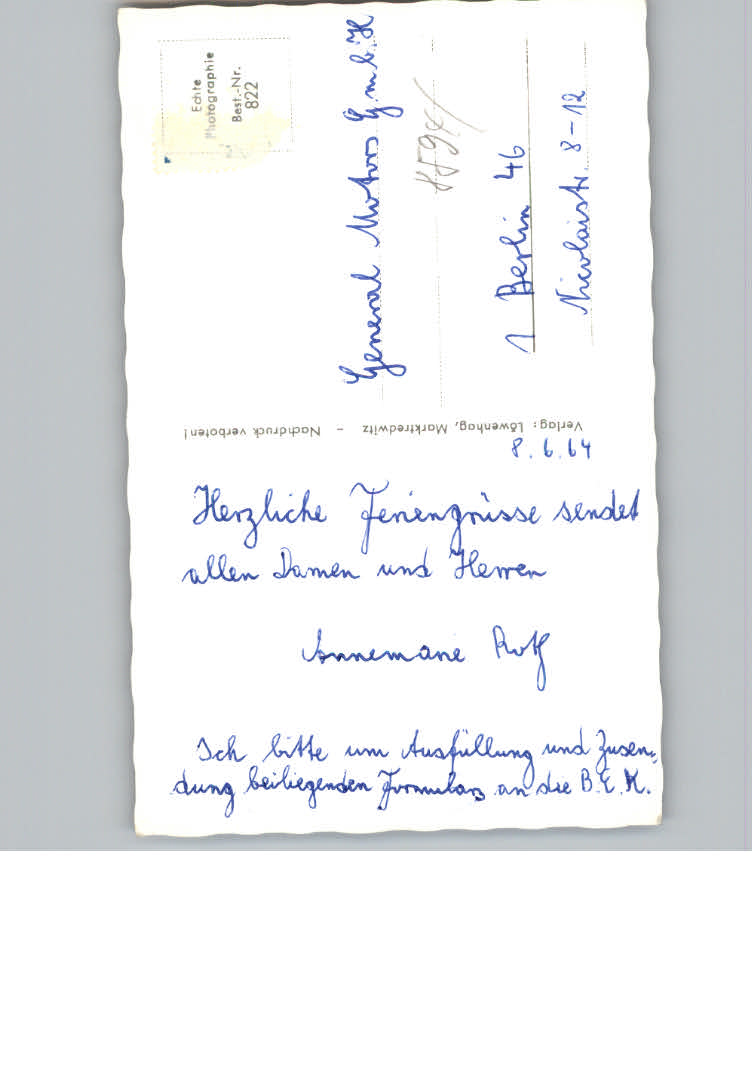 Echte
Photographie
Best.-Nr.
822
General Motors G.m.b.H
1 Berlin 46
Nicolaistr. 8-12
Verlag: Löwenhag, Marktredwitz - Nachdruck verboten!
8.6.64
Herzliche Feriengrüsse sendet
allen Damen und Herren
Annemarie Roth
Ich bitte um Ausfüllung und Zusen-
dung beiliegenden Formulars an die B.E.K.